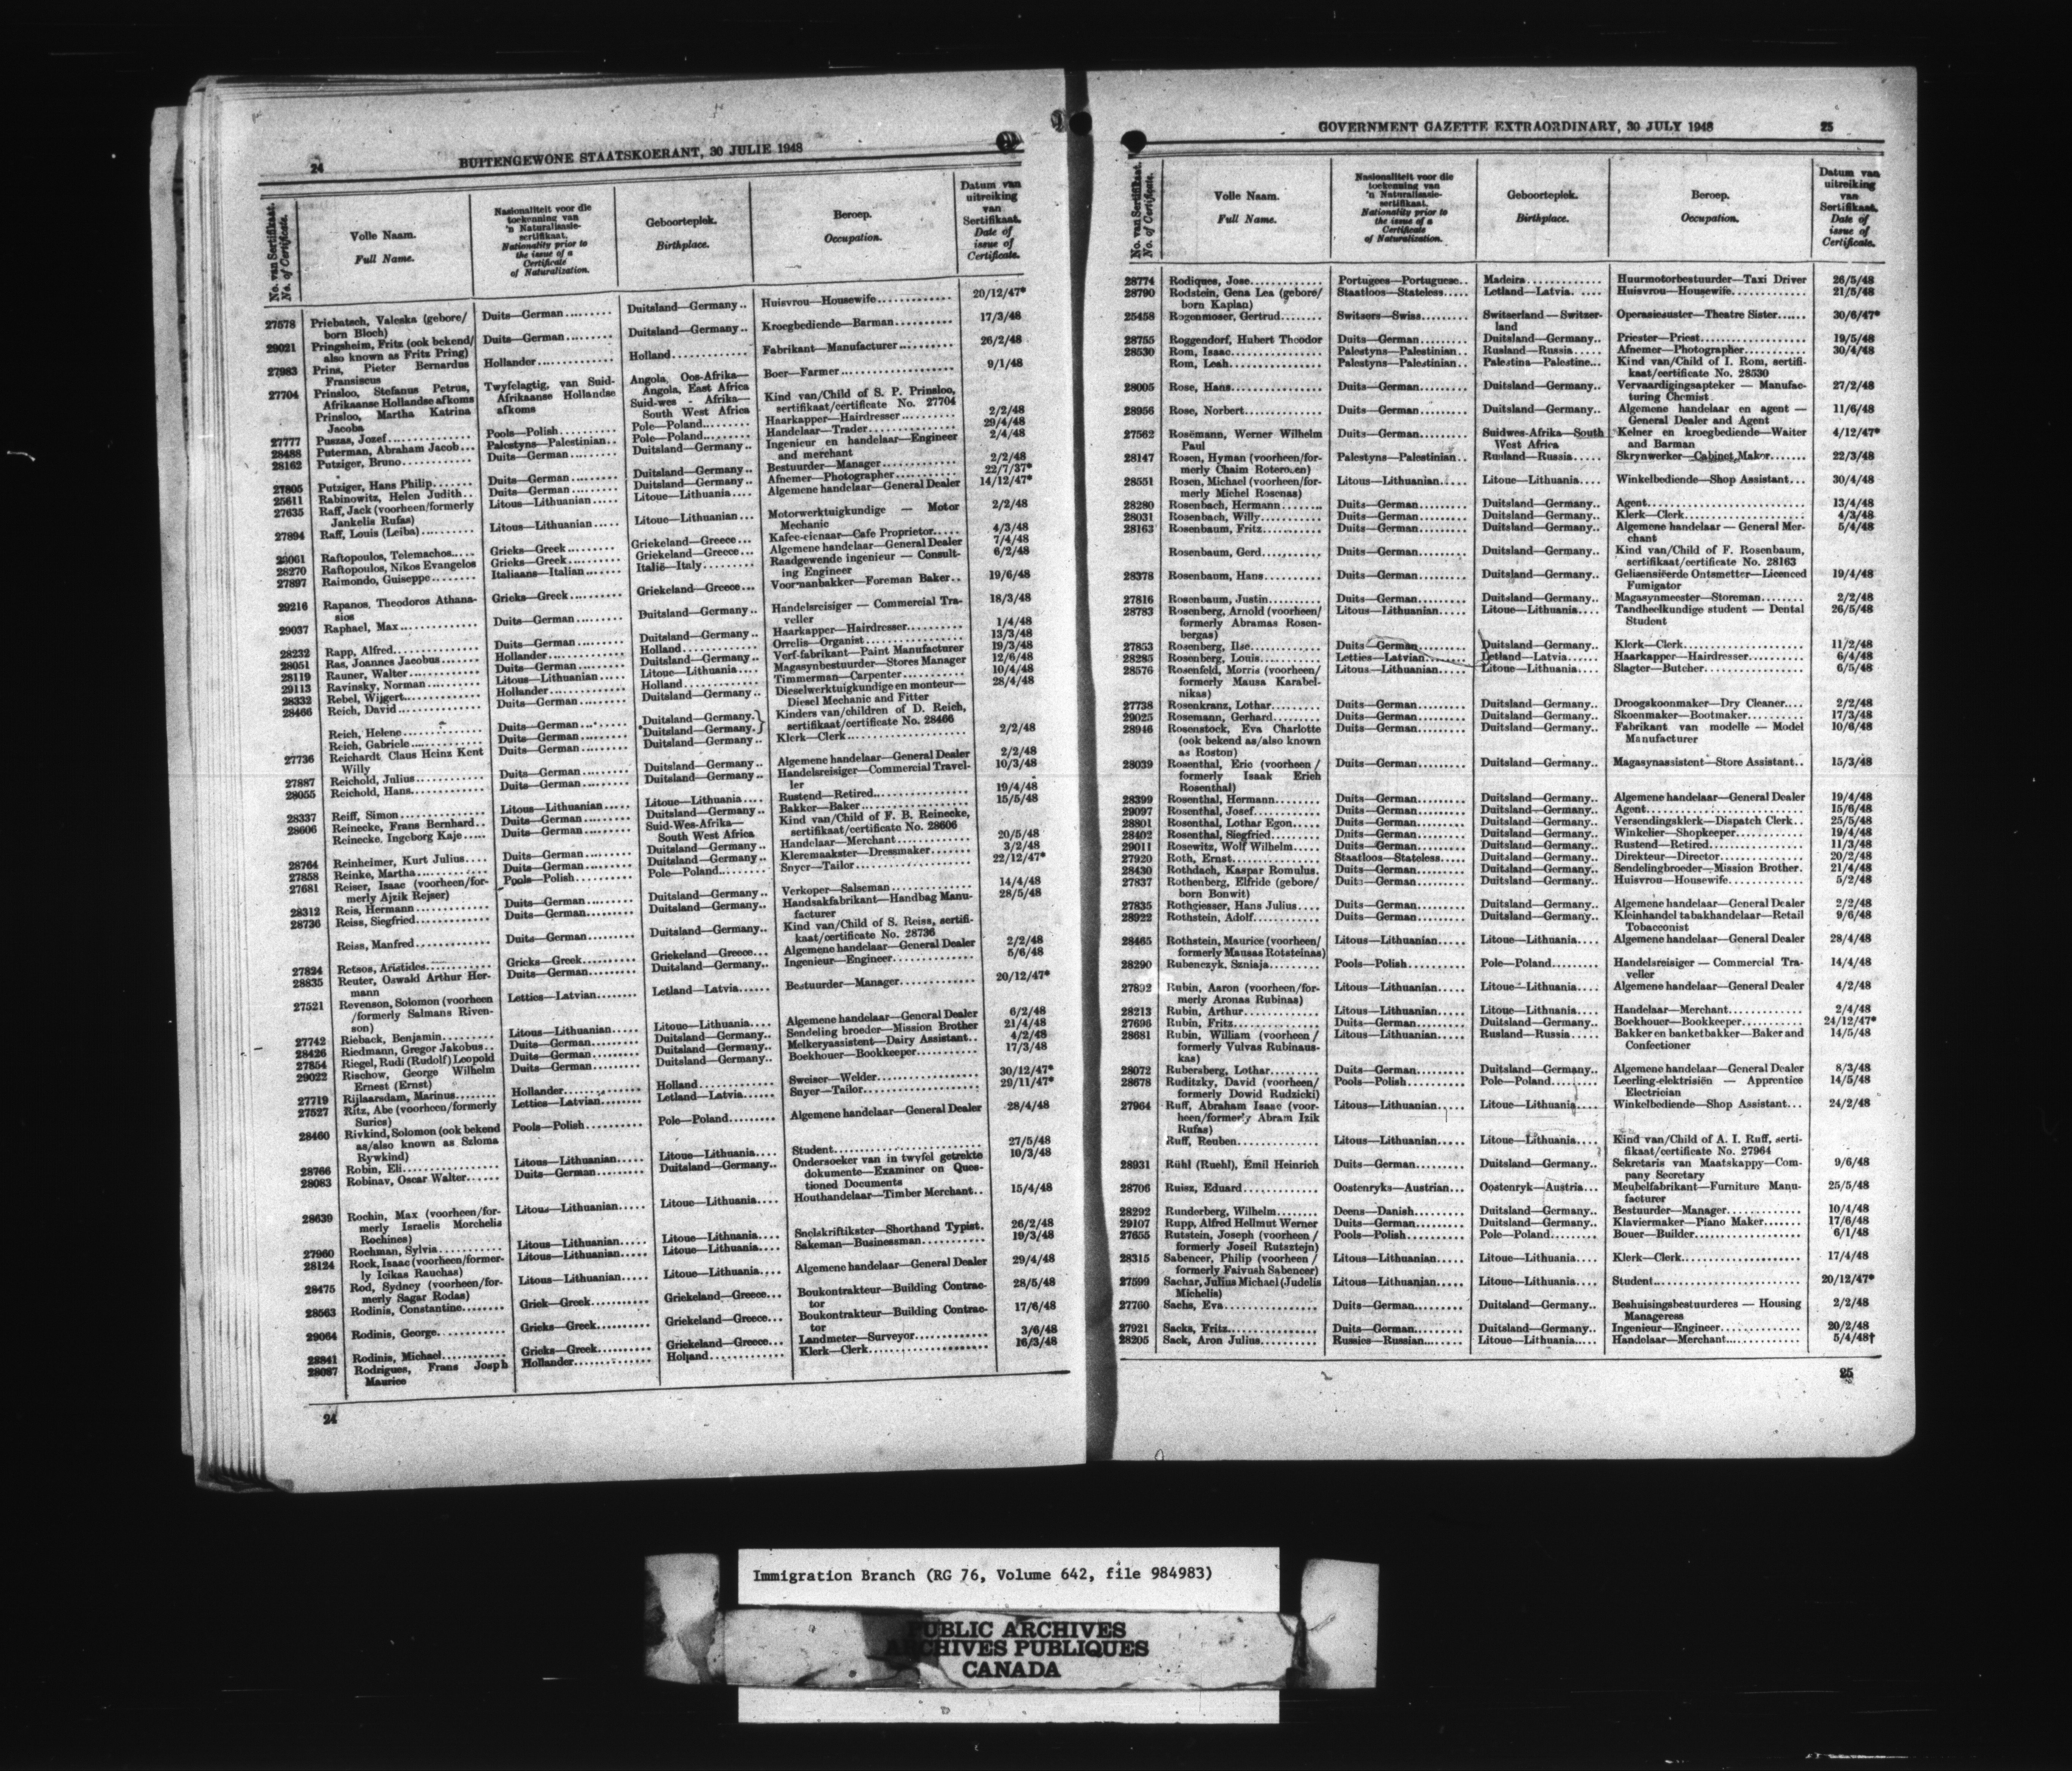 24
BUITENGEWONE STAATSKOERANT, 30 JULIE 1948
No. van Sertifikaat. No. of Certificate.
Volle Naam. Full Name.
Nasionaliteit voor die toekenning van 'n Naturalisasie-sertifikaat. Nationality prior to the issue of a Certificate of Naturalization.
Geboorteplek. Birthplace.
Beroep. Occupation.
Datum van uitreiking van Sertifikaat. Date of issue of Certificate.
27578 Priebatsch, Valeska (gebore/ Duits—German Duitsland—Germany Huisvrou—Housewife 20/12/47*
born Bloch)
29021 Pringsheim, Fritz (ook bekend/ Duits—German Duitsland—Germany Kroegbediende—Barman 17/3/48
also known as Fritz Pring)
27983 Prins, Pieter Bernardus Hollander Holland Fabrikant—Manufacturer 26/2/48
Fransiscus
27704 Prinsloo, Stefanus Petrus, Twyfelagtig, van Suid- Angola, Oos-Afrika— Boer—Farmer 9/1/48
Afrikaanse Hollandse afkoms Afrikaanse Hollandse Angola, East Africa
Prinsloo, Martha Katrina afkoms Suid-wes - Afrika— Kind van/Child of S. P. Prinsloo,
Jacoba South West Africa sertifikaat/certificate No. 27704
27777 Puszas, Jozef Pools—Polish Pole—Poland Haarkapper—Hairdresser 2/2/48
28488 Puterman, Abraham Jacob Palestyns—Palestinian Pole—Poland Handelaar—Trader 29/4/48
28162 Putziger, Bruno Duits—German Duitsland—Germany Ingenieur en handelaar—Engineer 2/4/48
and merchant
27805 Putziger, Hans Philip Duits—German Duitsland—Germany Bestuurder—Manager 2/2/48
25611 Rabinowitz, Helen Judith Duits—German Duitsland—Germany Afnemer—Photographer 22/7/37*
27635 Raff, Jack (voorheen/formerly Litous—Lithuanian Litoue—Lithuania Algemene handelaar—General Dealer 14/12/47*
Jankelis Rufas)
27894 Raff, Louis (Leiba) Litous—Lithuanian Litoue—Lithuanian Motorwerktuigkundige — Motor 2/2/48
Mechanic
28061 Raftopoulos, Telemachos Grieks—Greek Griekeland—Greece Kafee-eienaar—Cafe Proprietor 4/3/48
28270 Raftopoulos, Nikos Evangelos Grieks—Greek Griekeland—Greece Algemene handelaar—General Dealer 7/4/48
27897 Raimondo, Guiseppe Italiaans—Italian Italië—Italy Raadgewende ingenieur — Consult- 6/2/48
ing Engineer
29216 Rapanos, Theodoros Athana- Grieks—Greek Griekeland—Greece Voormanbakker—Foreman Baker 19/6/48
sios
29037 Raphael, Max Duits—German Duitsland—Germany Handelsreisiger — Commercial Tra- 18/3/48
veller
28232 Rapp, Alfred Duits—German Duitsland—Germany Haarkapper—Hairdresser 1/4/48
28051 Ras, Joannes Jacobus Hollander Holland Orrelis—Organist 13/3/48
28119 Rauner, Walter Duits—German Duitsland—Germany Verf-fabrikant—Paint Manufacturer 19/3/48
29113 Ravinsky, Norman Litous—Lithuanian Litoue—Lithuania Magasynbestuurder—Stores Manager 12/6/48
28332 Rebel, Wijgert Hollander Holland Timmerman—Carpenter 10/4/48
28466 Reich, David Duits—German Duitsland—Germany Dieselwerktuigkundige en monteur— 28/4/48
Diesel Mechanic and Fitter
Reich, Helene Duits—German Duitsland—Germany Kinders van/children of D. Reich,
Reich, Gabriele Duits—German Duitsland—Germany sertifikaat/certificate No. 28466
27736 Reichardt Claus Heinz Kent Duits—German Duitsland—Germany Klerk—Clerk 2/2/48
Willy
27887 Reichold, Julius Duits—German Duitsland—Germany Algemene handelaar—General Dealer 2/2/48
28055 Reichold, Hans Duits—German Duitsland—Germany Handelsreisiger—Commercial Travel- 10/3/48
ler
28337 Reiff, Simon Litous—Lithuanian Litoue—Lithuania Rustend—Retired 19/4/48
28606 Reinecke, Frans Bernhard Duits—German Duitsland—Germany Bakker—Baker 15/5/48
Reinecke, Ingeborg Kaje Duits—German Suid-Wes-Afrika— Kind van/Child of F. B. Reinecke,
South West Africa sertifikaat/certificate No. 28606
28764 Reinheimer, Kurt Julius Duits—German Duitsland—Germany Handelaar—Merchant 20/5/48
27858 Reinke, Martha Duits—German Duitsland—Germany Kleremaakster—Dressmaker 3/2/48
27681 Reiser, Isaac (voorheen/for- Pools—Polish Pole—Poland Snyer—Tailor 22/12/47*
merly Ajzik Rejser)
28312 Reis, Hermann Duits—German Duitsland—Germany Verkoper—Salseman 14/4/48
28736 Reiss, Siegfried Duits—German Duitsland—Germany Handsakfabrikant—Handbag Manu- 28/5/48
facturer
Reiss, Manfred Duits—German Duitsland—Germany Kind van/Child of S. Reiss, sertifi-
kaat/certificate No. 28736
27824 Retsos, Aristides Grieks—Greek Griekeland—Greece Algemene handelaar—General Dealer 2/2/48
28835 Reuter, Oswald Arthur Her- Duits—German Duitsland—Germany Ingenieur—Engineer 5/6/48
mann
27521 Revenson, Solomon (voorheen Letties—Latvian Letland—Latvia Bestuurder—Manager 20/12/47*
/formerly Salmans Riven-
son)
27742 Rieback, Benjamin Litous—Lithuanian Litoue—Lithuania Algemene handelaar—General Dealer 6/2/48
28426 Riedmann, Gregor Jakobus Duits—German Duitsland—Germany Sendeling broeder—Mission Brother 21/4/48
27854 Riegel, Rudi (Rudolf) Leopold Duits—German Duitsland—Germany Melkeryassistent—Dairy Assistant 4/2/48
29022 Rischow, George Wilhelm Duits—German Duitsland—Germany Boekhouer—Bookkeeper 17/3/48
Ernest (Ernst)
27719 Rijlaarsdam, Marinus Hollander Holland Sweiser—Welder 30/12/47*
27527 Ritz, Abe (voorheen/formerly Letties—Latvian Letland—Latvia Snyer—Tailor 29/11/47*
Surics)
28460 Rivkind, Solomon (ook bekend Pools—Polish Pole—Poland Algemene handelaar—General Dealer 28/4/48
as/also known as Szloma
Rywkind)
28766 Robin, Eli Litous—Lithuanian Litoue—Lithuania Student 27/5/48
28083 Robinav, Oscar Walter Duits—German Duitsland—Germany Ondersoeker van in twyfel getrekte 10/3/48
dokumente—Examiner on Ques-
tioned Documents
28639 Rochin, Max (voorheen/for- Litous—Lithuanian Litoue—Lithuania Houthandelaar—Timber Merchant 15/4/48
merly Israelis Morchelis
Rochines)
27960 Rochman, Sylvia Litous—Lithuanian Litoue—Lithuania Snelskriftikster—Shorthand Typist 26/2/48
28124 Rock, Isaac (voorheen/former- Litous—Lithuanian Litoue—Lithuania Sakeman—Businessman 19/3/48
ly Icikas Rauchas)
28475 Rod, Sydney (voorheen/for- Litous—Lithuanian Litoue—Lithuania Algemene handelaar—General Dealer 29/4/48
merly Sagar Rodas)
28563 Rodinis, Constantine Griek—Greek Griekeland—Greece Boukontrakteur—Building Contrac- 28/5/48
tor
29064 Rodinis, George Grieks—Greek Griekeland—Greece Boukontrakteur—Building Contrac- 17/6/48
tor
28841 Rodinis, Michael Grieks—Greek Griekeland—Greece Landmeter—Surveyor 3/6/48
28087 Rodrigues, Frans Josph Hollander Holland Klerk—Clerk 16/3/48
Maurice
24
GOVERNMENT GAZETTE EXTRAORDINARY, 30 JULY 1948
25
No. van Sertifikaat. No. of Certificate.
Volle Naam. Full Name.
Nasionaliteit voor die toekenning van 'n Naturalisasie-sertifikaat. Nationality prior to the issue of a Certificate of Naturalization.
Geboorteplek. Birthplace.
Beroep. Occupation.
Datum van uitreiking van Sertifikaat. Date of issue of Certificate.
28774 Rodiques, Jose Portugees—Portuguese Madeira Huurmotorbestuurder—Taxi Driver 26/5/48
28790 Rodstein, Gena Lea (gebore/ Staatloos—Stateless Letland—Latvia Huisvrou—Housewife 21/5/48
born Kaplan)
25458 Rogenmoser, Gertrud Switsers—Swiss Switserland — Switzer- Operasiesuster—Theatre Sister 30/6/47*
land
28755 Roggendorf, Hubert Theodor Duits—German Duitsland—Germany Priester—Priest 19/5/48
28530 Rom, Isaac Palestyns—Palestinian Rusland—Russia Afnemer—Photographer 30/4/48
Rom, Leah Palestyns—Palestinian Palestina—Palestine Kind van/Child of I. Rom, sertifi-
kaat/certificate No. 28530
28005 Rose, Hans Duits—German Duitsland—Germany Vervaardigingsapteker — Manufac- 27/2/48
turing Chemist
28956 Rose, Norbert Duits—German Duitsland—Germany Algemene handelaar en agent — 11/6/48
General Dealer and Agent
27562 Rosemann, Werner Wilhelm Duits—German Suidwes-Afrika—South Kelner en kroegbediende—Waiter 4/12/47*
Paul West Africa and Barman
28147 Rosen, Hyman (voorheen/for- Palestyns—Palestinian Rusland—Russia Skrynwerker—Cabinet Maker 22/3/48
merly Chaim Roteroven)
28551 Rosen, Michael (voorheen/for- Litous—Lithuanian Litoue—Lithuania Winkelbediende—Shop Assistant 30/4/48
merly Michel Rosenas)
28280 Rosenbach, Hermann Duits—German Duitsland—Germany Agent 13/4/48
28031 Rosenbach, Willy Duits—German Duitsland—Germany Klerk—Clerk 4/3/48
28163 Rosenbaum, Fritz Duits—German Duitsland—Germany Algemene handelaar — General Mer- 5/4/48
chant
Rosenbaum, Gerd Duits—German Duitsland—Germany Kind van/Child of F. Rosenbaum,
sertifikaat/certificate No. 28163
28378 Rosenbaum, Hans Duits—German Duitsland—Germany Gelisensieerde Ontsmetter—Licenced 19/4/48
Fumigator
27816 Rosenbaum, Justin Duits—German Duitsland—Germany Magasynmeester—Storeman 2/2/48
28783 Rosenberg, Arnold (voorheen/ Litous—Lithuanian Litoue—Lithuania Tandheelkundige student — Dental 26/5/48
formerly Abramas Rosen- Student
bergas)
27853 Rosenberg, Ilse Duits—German Duitsland—Germany Klerk—Clerk 11/2/48
28285 Rosenberg, Louis Letties—Latvian Letland—Latvia Haarkapper—Hairdresser 6/4/48
28576 Rosenfeld, Morris (voorheen/ Litous—Lithuanian Litoue—Lithuania Slagter—Butcher 6/5/48
formerly Mausa Karabel-
nikas)
27738 Rosenkranz, Lothar Duits—German Duitsland—Germany Droogskoonmaker—Dry Cleaner 2/2/48
29025 Rosemann, Gerhard Duits—German Duitsland—Germany Skoenmaker—Bootmaker 17/3/48
28946 Rosenstock, Eva Charlotte Duits—German Duitsland—Germany Fabrikant van modelle — Model 10/6/48
(ook bekend as/also known Manufacturer
as Roston)
28039 Rosenthal, Eric (voorheen / Duits—German Duitsland—Germany Magasynassistent—Store Assistant 15/3/48
formerly Isaak Erich
Rosenthal)
28399 Rosenthal, Hermann Duits—German Duitsland—Germany Algemene handelaar—General Dealer 19/4/48
29097 Rosenthal, Josef Duits—German Duitsland—Germany Agent 15/6/48
28801 Rosenthal, Lothar Egon Duits—German Duitsland—Germany Versendingsklerk—Dispatch Clerk 25/5/48
28402 Rosenthal, Siegfried Duits—German Duitsland—Germany Winkelier—Shopkeeper 19/4/48
29011 Rosewitz, Wolf Wilhelm Duits—German Duitsland—Germany Rustend—Retired 11/3/48
27920 Roth, Ernst Staatloos—Stateless Duitsland—Germany Direkteur—Director 20/2/48
28430 Rothdach, Kaspar Romulus Duits—German Duitsland—Germany Sendelingbroeder—Mission Brother 21/4/48
27837 Rothenberg, Elfride (gebore/ Duits—German Duitsland—Germany Huisvrou—Housewife 5/2/48
born Bonwit)
27835 Rothgiesser, Hans Julius Duits—German Duitsland—Germany Algemene handelaar—General Dealer 2/2/48
28922 Rothstein, Adolf Duits—German Duitsland—Germany Kleinhandel tabakhandelaar—Retail 9/6/48
Tobacconist
28465 Rothstein, Maurice (voorheen/ Litous—Lithuanian Litoue—Lithuania Algemene handelaar—General Dealer 28/4/48
formerly Mausas Rotsteinas)
28290 Rubenczyk, Szniaja Pools—Polish Pole—Poland Handelsreisiger — Commercial Tra- 14/4/48
veller
27892 Rubin, Aaron (voorheen/for- Litous—Lithuanian Litoue—Lithuania Algemene handelaar—General Dealer 4/2/48
merly Aronas Rubinas)
28213 Rubin, Arthur Litous—Lithuanian Litoue—Lithuania Handelaar—Merchant 2/4/48
27696 Rubin, Fritz Duits—German Duitsland—Germany Boekhouer—Bookkeeper 24/12/47*
28681 Rubin, William (voorheen / Litous—Lithuanian Rusland—Russia Bakker en banketbakker—Baker and 14/5/48
formerly Vulvas Rubinaus- Confectioner
kas)
28072 Rubersberg, Lothar Duits—German Duitsland—Germany Algemene handelaar—General Dealer 8/3/48
28678 Ruditzky, David (voorheen/ Pools—Polish Pole—Poland Leerling-elektrisiën — Apprentice 14/5/48
formerly Dowid Rudzicki) Electrician
27964 Ruff, Abraham Isaac (voor- Litous—Lithuanian Litoue—Lithuania Winkelbediende—Shop Assistant 24/2/48
heen/formerly Abram Izik
Rufas)
Ruff, Reuben Litous—Lithuanian Litoue—Lithuania Kind van/Child of A. I. Ruff, serti-
fikaat/certificate No. 27964
28931 Rühl (Ruehl), Emil Heinrich Duits—German Duitsland—Germany Sekretaris van Maatskappy—Com- 9/6/48
pany Secretary
28706 Ruisz, Eduard Oostenryks—Austrian Oostenryk—Austria Meubelfabrikant—Furniture Manu- 25/5/48
facturer
28292 Runderberg, Wilhelm Deens—Danish Duitsland—Germany Bestuurder—Manager 10/4/48
29107 Rupp, Alfred Hellmut Werner Duits—German Duitsland—Germany Klaviermaker—Piano Maker 17/6/48
27655 Rutstein, Joseph (voorheen / Pools—Polish Pole—Poland Bouer—Builder 6/1/48
formerly Joseil Rutsztejn)
28315 Sabencer, Philip (voorheen / Litous—Lithuanian Litoue—Lithuania Klerk—Clerk 17/4/48
formerly Faivush Sabencer)
27599 Sachar, Julius Michael (Judelis Litous—Lithuanian Litoue—Lithuania Student 20/12/47*
Michelis)
27760 Sachs, Eva Duits—German Duitsland—Germany Beshuisingsbestuurderes — Housing 2/2/48
Manageress
27921 Sacks, Fritz Duits—German Duitsland—Germany Ingenieur—Engineer 20/2/48
28205 Sack, Aron Julius Russies—Russian Litoue—Lithuania Handelaar—Merchant 5/4/48†
25
Immigration Branch (RG 76, Volume 642, file 984983)
PUBLIC ARCHIVES
ARCHIVES PUBLIQUES
CANADA